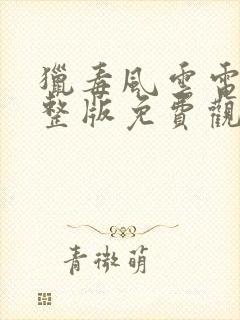 獵毒風雲電
整版免費觀
青微萌